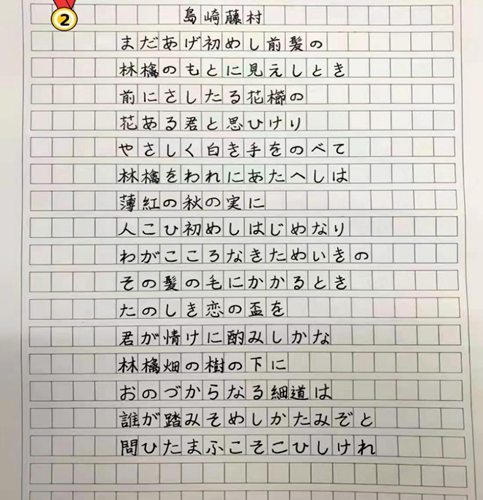 2
島崎藤村
まだあげ初めし前髪の
林檎のもとに見えしとき
前にさしたる花櫛の
花ある君と思ひけり
やさしく白き手をのべて
林檎をわれにあたへしは
薄紅の秋の実に
人こひ初めしはじめなり
わがこころなきためいきの
その髪の毛にかかるとき
たのしき恋の盃を
君が情けに酌みしかな
林檎畑の樹の下に
おのづからなる細道は
誰が踏みそめしかたみぞと
問ひたまふこそこひしけれ